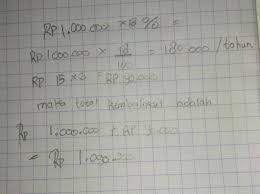 RP 1.000.000 × 18 % =
Rp 1.000.000 × 18/100 = 180.000 / tahun
Rp 15 × 3 = Rp 90.000
maka total adalah
Rp 1.000.000 + Rp 90.000
= Rp 1.090.000